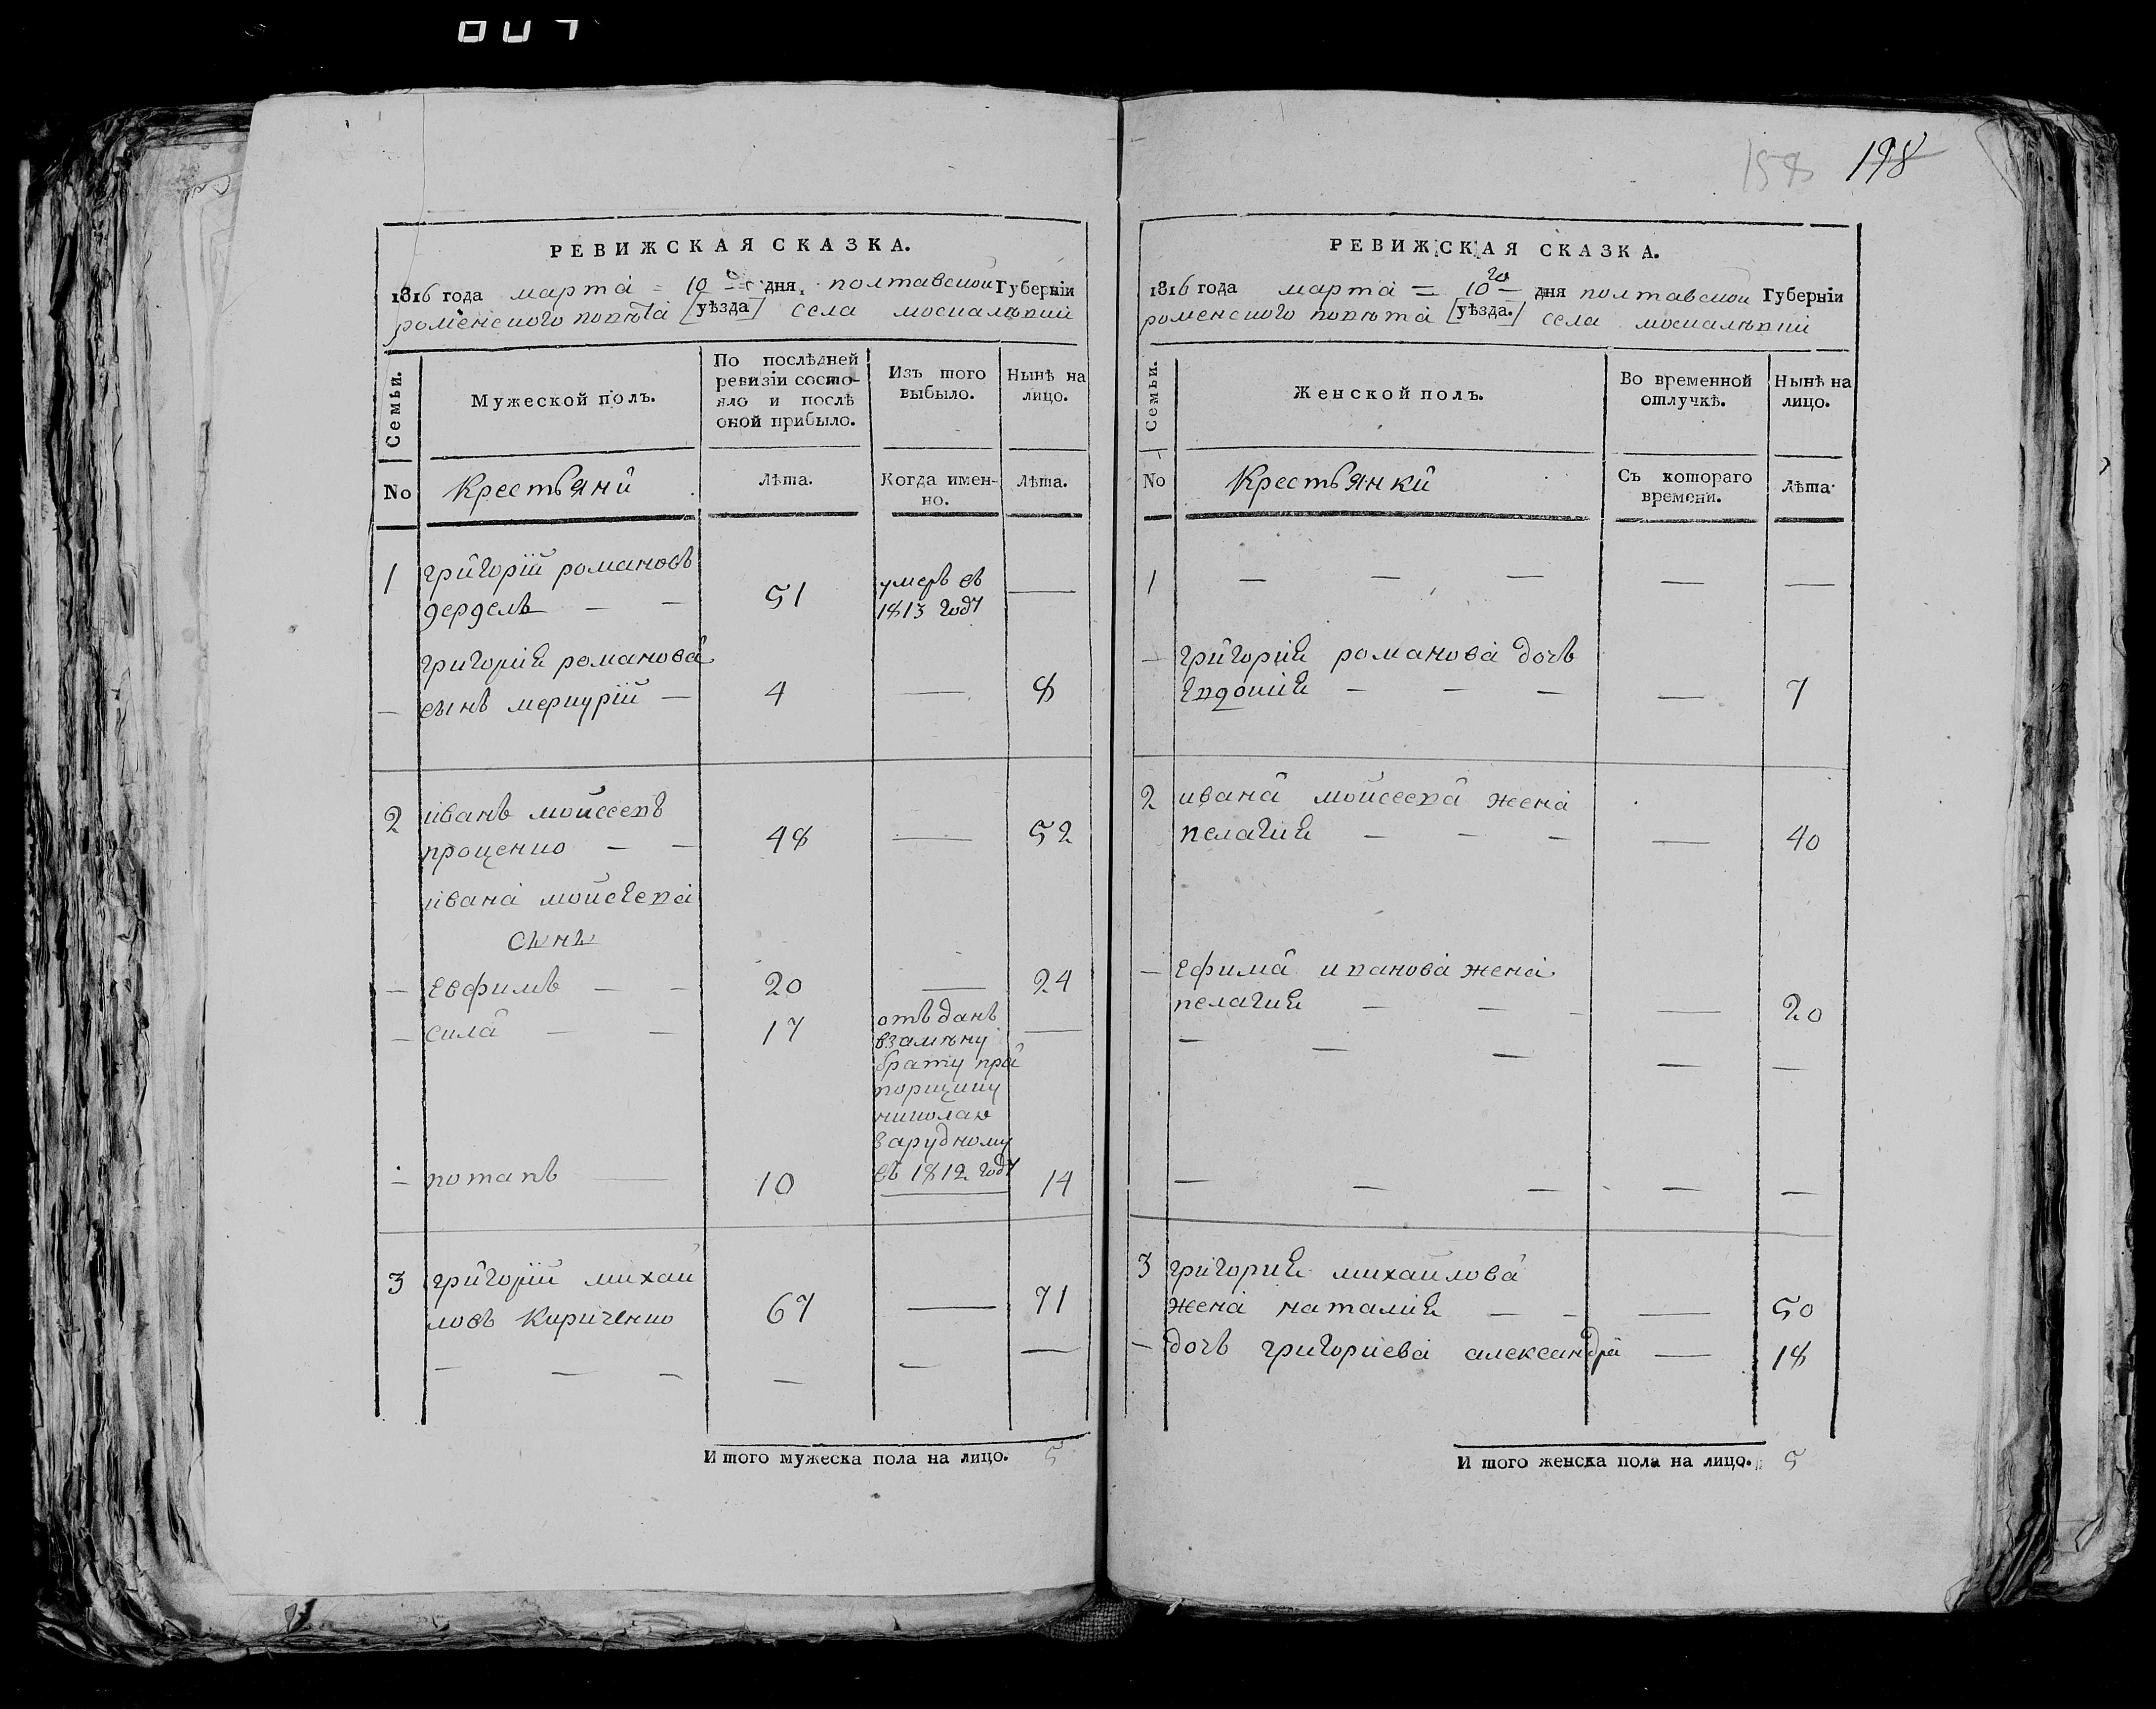 158 198
РЕВИЖСКАЯ СКАЗКА.
1816 года марта = 10 дня, полтавской Губерніи
роменского повѣта [уѣзда] села москалѣвки
Семьи.
Мужеской полъ.
По послѣдней
ревизіи состо-
яло и послѣ
оной прибыло.
Изъ того
выбыло.
Нынѣ на
лицо.
No
Крестьяни
Лѣта.
Когда имен-
но.
Лѣта.
1 григорій романовъ
дердель — — 51 умеръ въ —
1813 году
григория романова
— сынъ меркурій — 4 — 8
2 иванъ мойсеевъ
проценко — — 48 — 52
ивана мойсеева
сынъ
— Евфимъ — — 20 — 24
— сила — — 17 отъданъ —
взамѣну
брату пра
порщику
николаю
Зарудному
въ 1812 году
— потапъ — 10 — 14
3 григорій михаи
ловъ Кириченко 67 — 71
— — — — — —
И того мужеска пола на лицо. 5
РЕВИЖСКАЯ СКАЗКА.
1816 года марта = 10го дня полтавской Губерніи
роменского повѣта [уѣзда.] села москалѣвки
Семьи.
Женской полъ.
Во временной
отлучкѣ.
Нынѣ на
лицо.
No
Крестьянки
Съ котораго
времени.
Лѣта
1 — — — — —
— григория романова дочь
Евдокия — — — — 7
2 ивана мойсеева жена
пелагия — — — — 40
— Ефима иванова жена
пелагия — — — — 20
— — — — —
— — — — —
3 григория михайлова
жена наталия — — — 50
— дочь григориева александра — 18
И того женска пола на лицо. 5